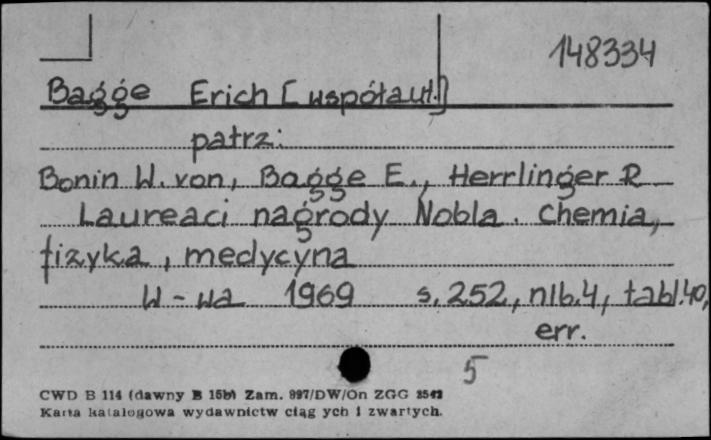 148334
Bagge Erich [współaut.]
patrz:
Bonin W. von, Bagge E., Herrlinger R
Laureaci nagrody Nobla. Chemia,
fizyka, medycyna
W-wa 1969 s. 252, nlb. 4, tabl. 40,
err.
5
CWD B 114 (dawny B 15b) Zam. 997/DW/On ZGG 2542
Karta katalogowa wydawnictw ciąg ych i zwartych.